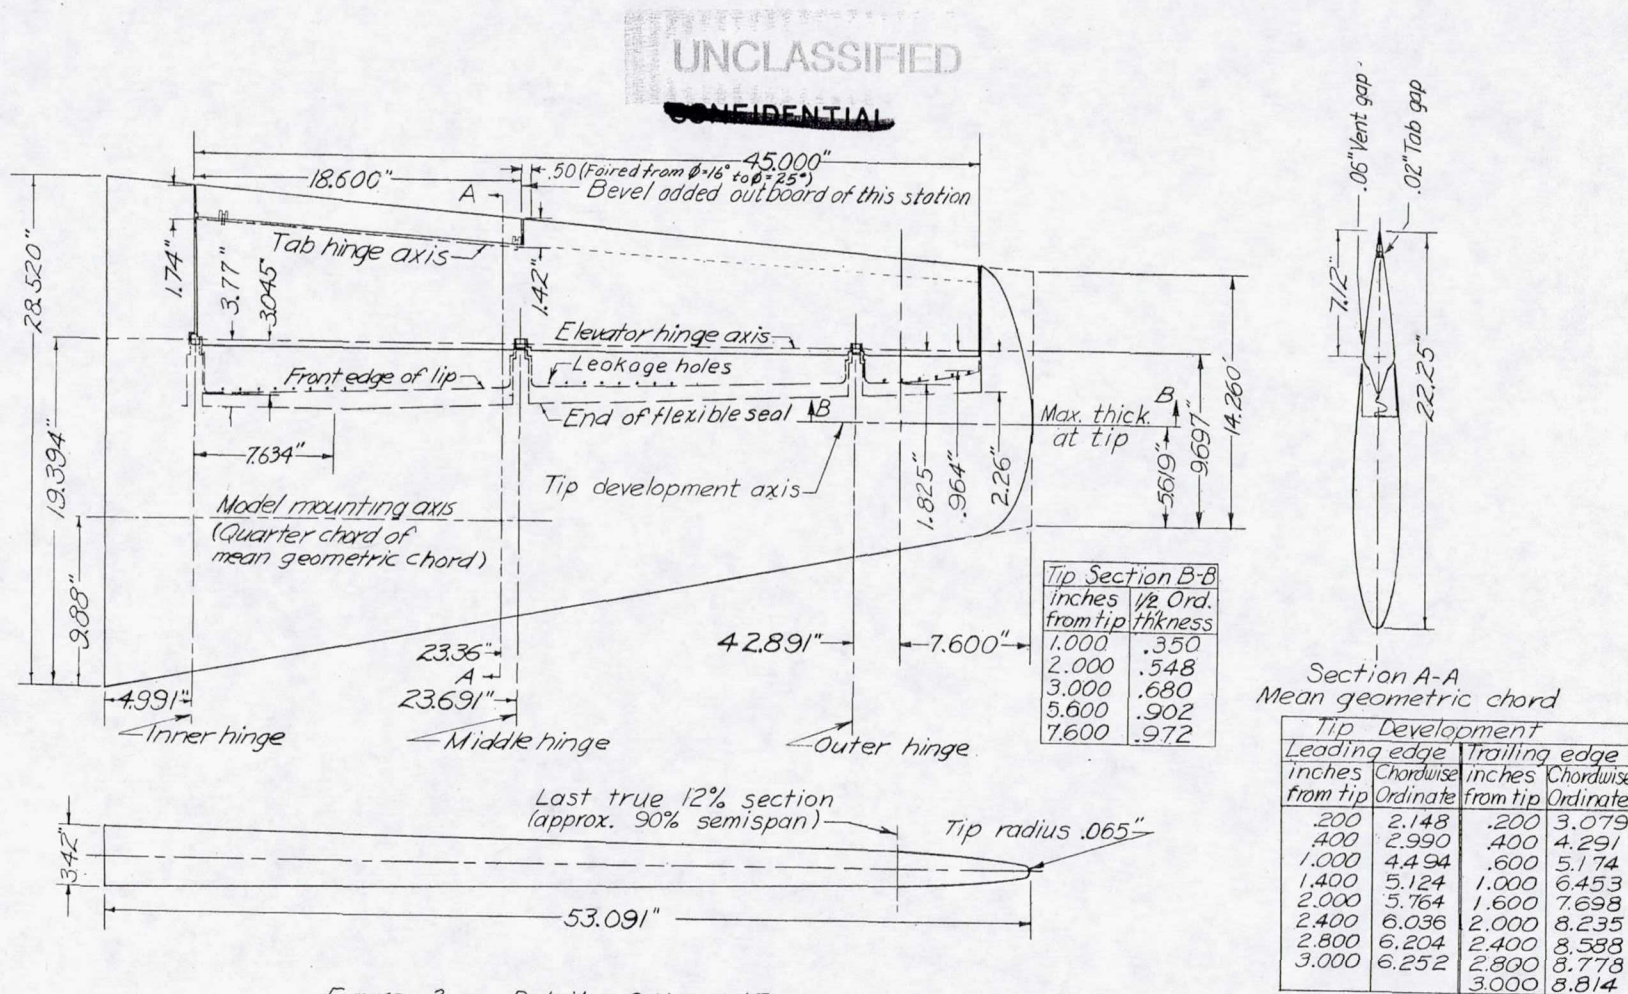 UNCLASSIFIED
CONFIDENTIAL
45.000"
18.600"
.50 (Faired from ϕ=16° to ϕ=25°)
Bevel added outboard of this station
A
Tab hinge axis
28.520"
1.74"
3.77"
3.045"
1.42"
Elevator hinge axis
Leakage holes
Front edge of lip
End of flexible seal
B
B
Max. thick.
at tip
19.394"
7.634"
Tip development axis
1.825"
.964"
2.26"
5.619"
9.697"
14.260"
Model mounting axis
(Quarter chord of
mean geometric chord)
9.88"
23.36"
A
42.891"
7.600"
4.991"
23.691"
Inner hinge
Middle hinge
Outer hinge
Tip Section B-B
inches 1/2 Ord.
from tip thkness
1.000 .350
2.000 .548
3.000 .680
5.600 .902
7.600 .972
.06" Vent gap
.02" Tab gap
7.12"
22.25"
Section A-A
Mean geometric chord
Tip Development
Leading edge Trailing edge
inches Chordwise inches Chordwise
from tip Ordinate from tip Ordinate
.200 2.148 .200 3.079
.400 2.990 .400 4.291
1.000 4.494 .600 5.174
1.400 5.124 1.000 6.453
2.000 5.764 1.600 7.698
2.400 6.036 2.000 8.235
2.800 6.204 2.400 8.588
3.000 6.252 2.800 8.778
3.000 8.814
Last true 12% section
(approx. 90% semispan)
Tip radius .065"
3.42"
53.091"